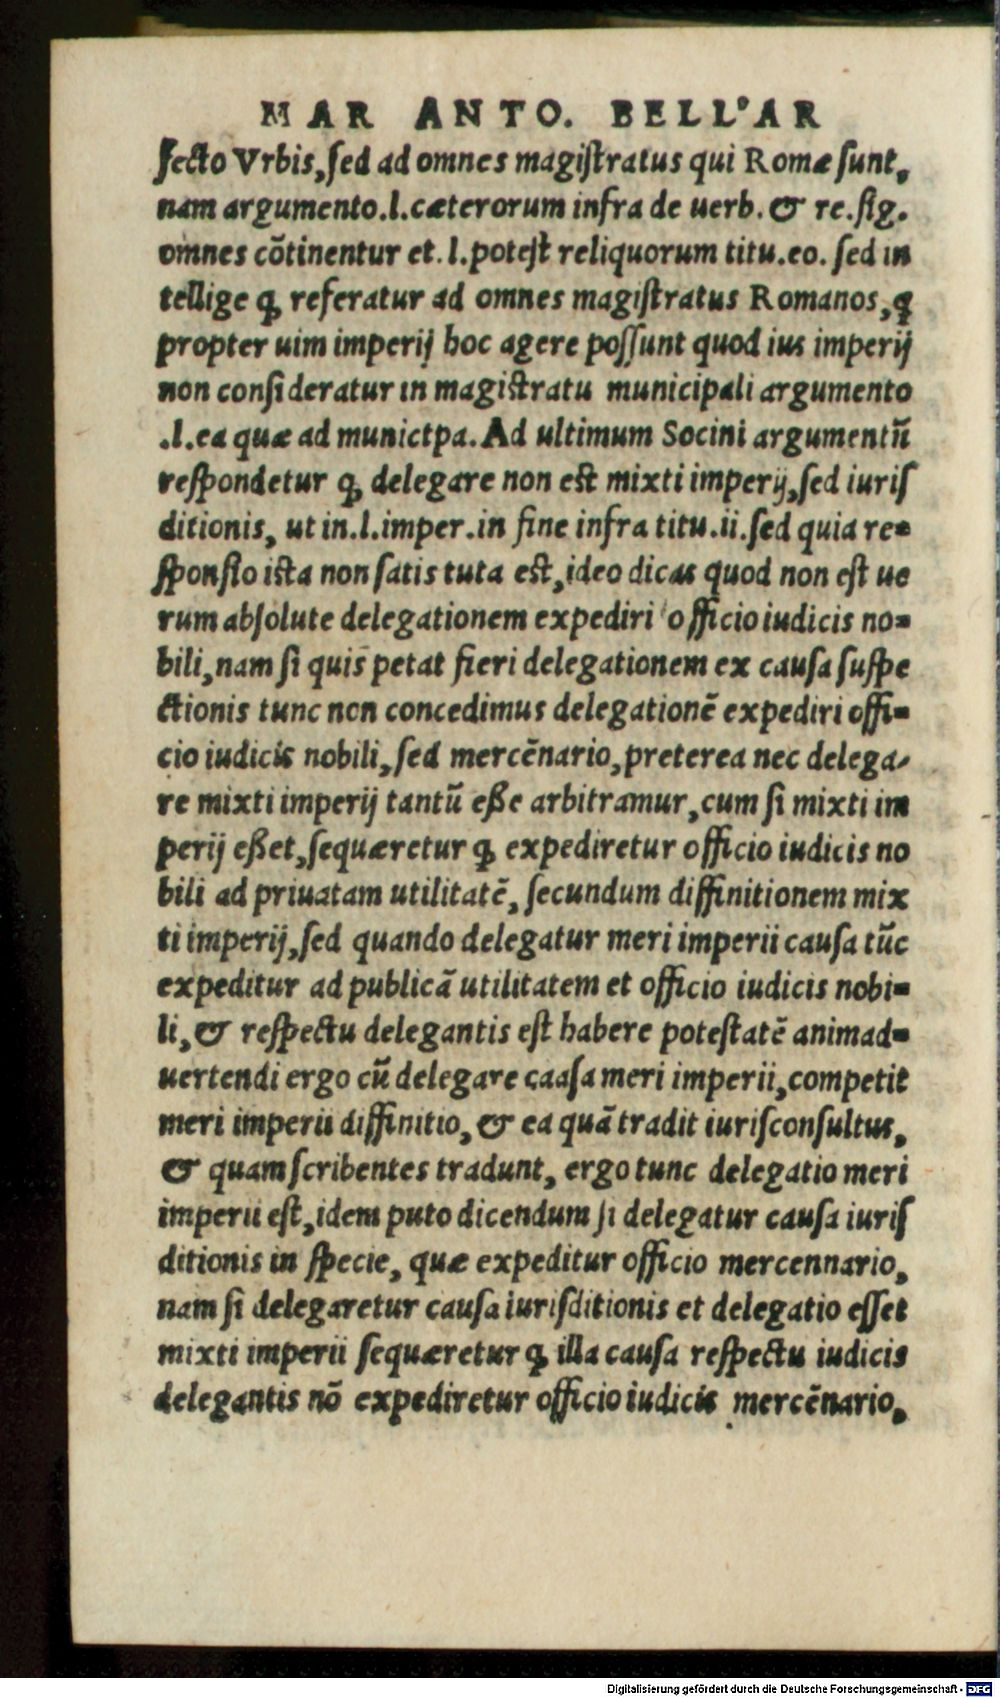 MAR ANTO. BELL'AR
fecto Vrbis, ſed ad omnes magiſtratus qui Romæ ſunt,
nam argumento.l.cæterorum infra de uerb. & re.ſig.
omnes cõtinentur et.l.poteſt reliquorum titu.eo. ſed in
tellige ꝙ referatur ad omnes magiſtratus Romanos, ꝙ
propter uim imperij hoc agere poſſunt quod ius imperij
non conſideratur in magiſtratu municipali argumento
.l.ea quæ ad munictpa. Ad ultimum Socini argumentũ
reſpondetur ꝙ delegare non eſt mixti imperij, ſed iuriſ
ditionis, ut in.l.imper.in fine infra titu.ii.ſed quia re=
ſponſio iſta non ſatis tuta eſt, ideo dicas quod non eſt ue
rum abſolute delegationem expediri officio iudicis no=
bili, nam ſi quis petat fieri delegationem ex cauſa ſuſpe
ctionis tunc non concedimus delegationẽ expediri offi=
cio iudicis nobili, ſed mercẽnario, preterea nec delega-
re mixti imperij tantũ eße arbitramur, cum ſi mixti im
perij eßet, ſequæretur ꝙ expediretur officio iudicis no
bili ad priuatam utilitatẽ, ſecundum diffinitionem mix
ti imperij, ſed quando delegatur meri imperii cauſa tũc
expeditur ad publicã utilitatem et officio iudicis nobi=
li, & reſpectu delegantis eſt habere poteſtatẽ animad=
uertendi ergo cũ delegare caaſa meri imperii, competit
meri imperii diffinitio, & ea quã tradit iuriſconſultus,
& quam ſcribentes tradunt, ergo tunc delegatio meri
imperii eſt, idem puto dicendum ſi delegatur cauſa iuriſ
ditionis in ſpecie, quæ expeditur officio mercennario,
nam ſi delegaretur cauſa iuriſditionis et delegatio eſſet
mixti imperii ſequæretur ꝙ illa cauſa reſpectu iudicis
delegantis nõ expediretur officio iudicis mercẽnario,
Digitalisierung gefördert durch die Deutsche Forschungsgemeinschaft - DFG